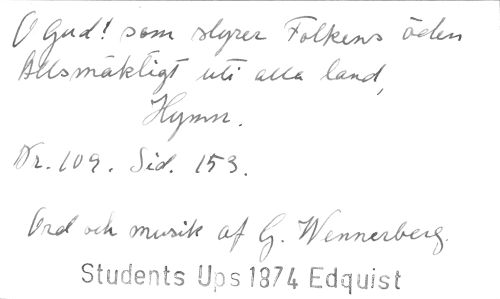 O Gud! som styrer Folkens öden
Allsmäktigt uti alla land,
Hymn.
Nr. 109. Sid. 153.
Ord och musik af G. Wennerberg.
Students Ups 1874 Edquist